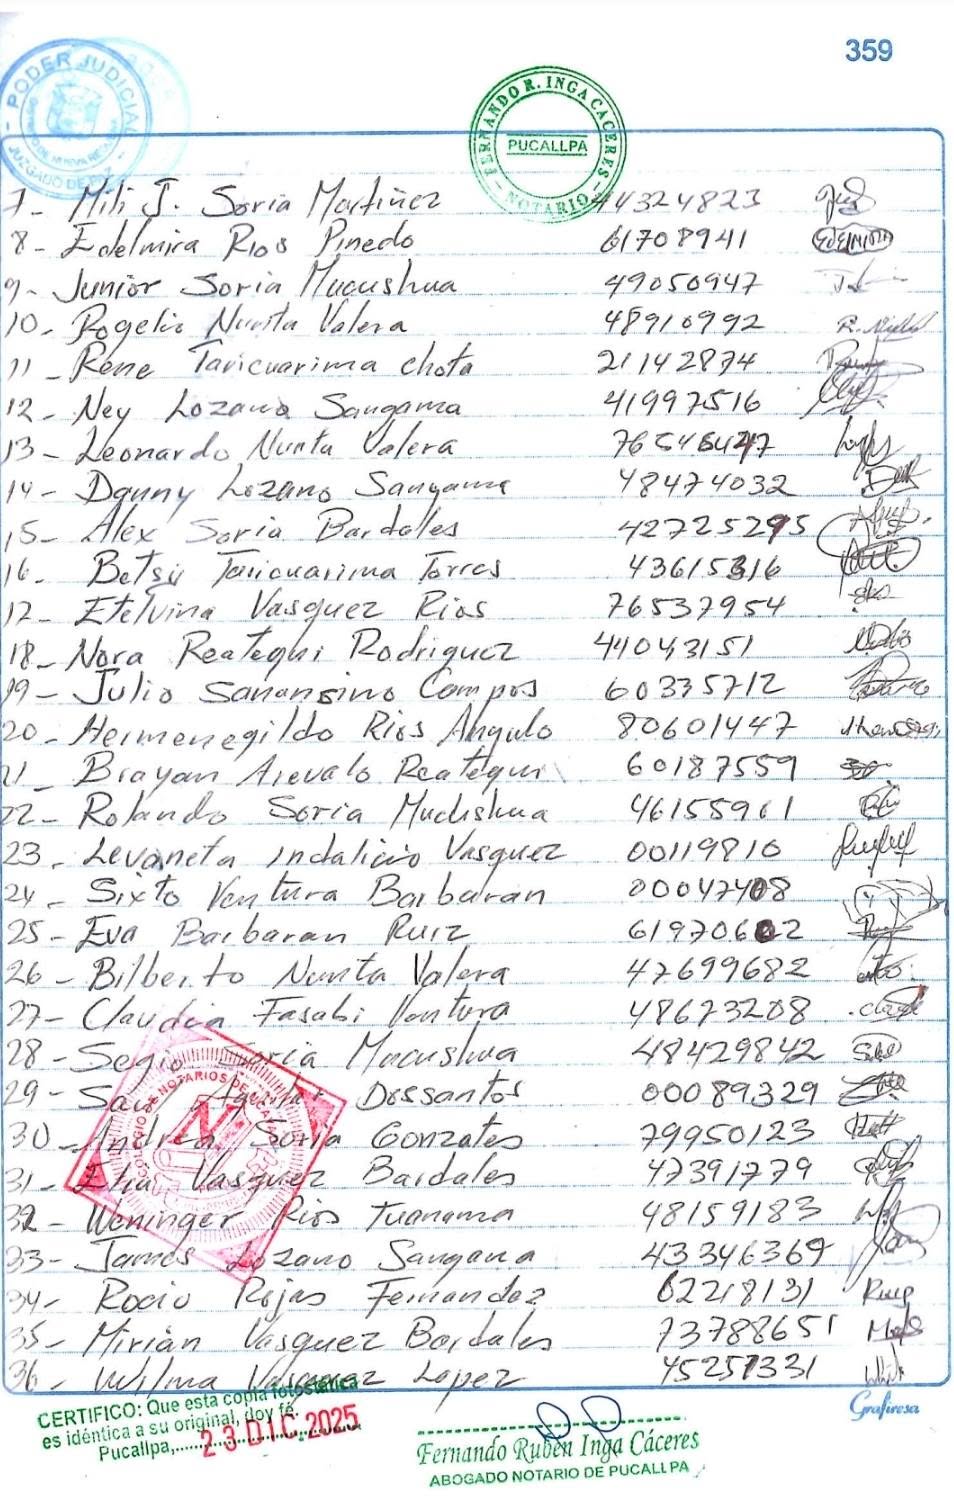 359
PODER JUDICIAL
JUZGADO DE PAZ
FERNANDO R. INGA CACERES
PUCALLPA
NOTARIO
7- Mili J. Soria Martiñez 44324823
8- Edelmira Rios Pinedo 61708941 EdElMIRA
9- Junior Soria Mucushua 49050947
10- Rogelio Nunta Valera 48910992
11- Rene Taricuarima chota 21142874
12- Ney Lozano Sangama 41997516
13- Leonardo Nunta Valera
14- Danny Lozano Sangama 48474032
15- Alex Soria Bardales 42725295
16- Betsy Taricuarima Torres 43615316
17- Etelvina Vasquez Rios 76537954
18- Nora Reategui Rodriguez 44043151
19- Julio Sanansino Campos 60335712
20- Hermenegildo Rios Angulo 80601447
21- Brayan Arevalo Reategui 60187559
22- Rolando Soria Mucushua 46155961
23- Levaneta Indalicio Vasquez 00119810
24- Sixto Ventura Barbaran 00047408
25- Eva Barbaran Ruiz
26- Bilberto Nunta Valera 47699682
27- Claudia Fasabi Ventura 48673208
28- Segio Soria Mucushua 48429842
29- Dossantos 00089329
30- Andrea Soria Gonzales 79950123
31- Elia Vasquez Bardales 47391779
32- Weninger Rios Tuanama 48159183
33- James Lozano Sangama 43346369
34- Rocio Rojas Fernandez 62218131
35- Mirian Vasquez Bardales 73788651
36- Wilma Vasquez Lopez 45257331
Grafiresa
CERTIFICO: Que esta copia fotostática
es idéntica a su original, doy fé.
Pucallpa, 23 DIC 2025
Fernando Rubén Inga Cáceres
ABOGADO NOTARIO DE PUCALLPA